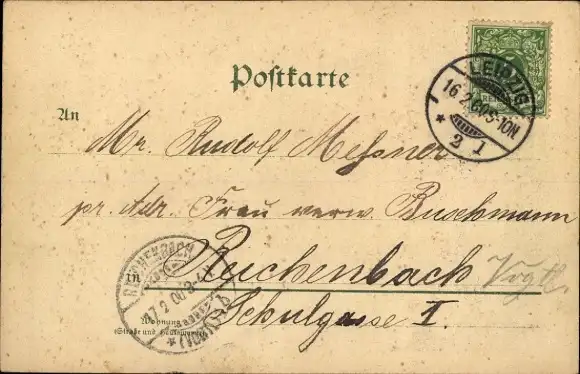 Postkarte
LEIPZIG
16.2.00.9-10N
* 2 1
An
Mr. Rudolf Messner
pr. Adr. Frau verw. Buschmann
in Reichenbach Vogtl
REICHENBACH
17.2.00.
(VOGTL.)
Wohnung
(Straße und Hausnummer)
Schulgasse I.